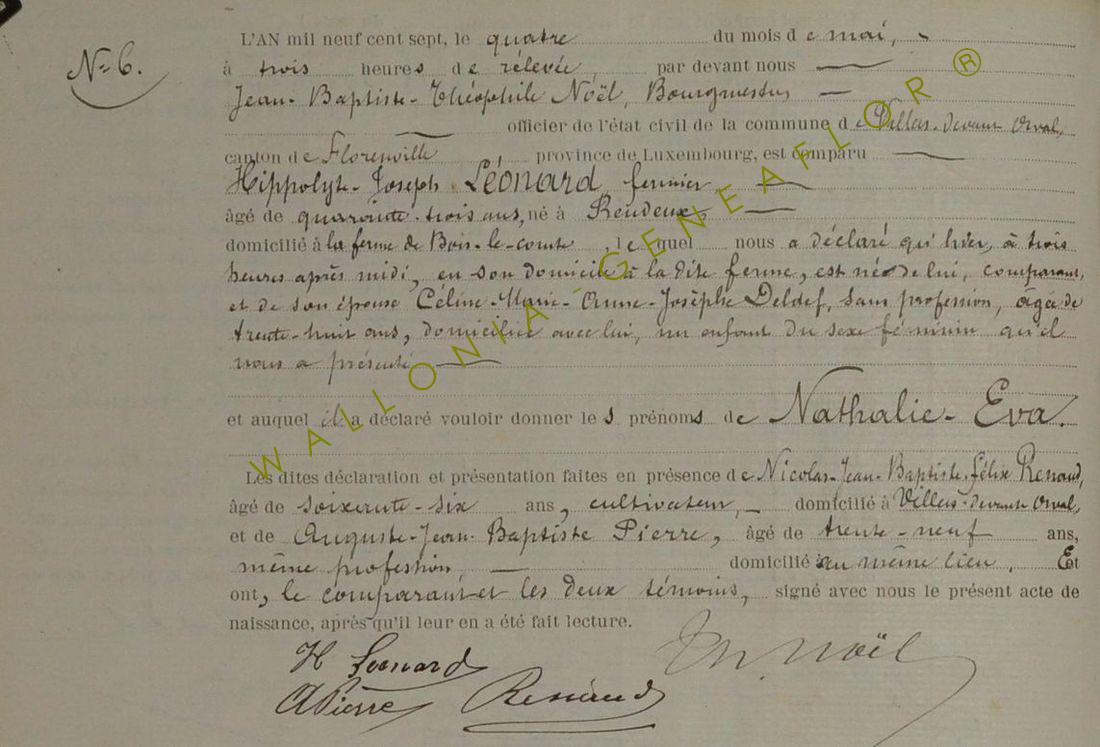 N° 6.
L'AN mil neuf cent sept, le quatre du mois de mai,
à trois heures de relevée, par devant nous
Jean-Baptiste-Théophile Noël, Bourgmestre,
officier de l'état civil de la commune de Villers-devant Orval,
canton de Florenville, province de Luxembourg, est comparu
Hippolyte-Joseph LÉONARD, fermier
âgé de quarante-trois ans, né à Rendeux,
domicilié à la ferme de Bois-le-comte, lequel nous a déclaré qu'hier, à trois
heures après midi, en son domicile à la dite ferme, est né de lui, comparant,
et de son épouse Céline-Marie-Anne-Josèphe Deldef, sans profession, âgée de
trente-huit ans, domiciliée avec lui, un enfant du sexe féminin qu'il
nous a présenté
et auquel il a déclaré vouloir donner les prénoms de Nathalie-Eva.
Les dites déclaration et présentation faites en présence de Nicolas-Jean-Baptiste-Félix Renaud,
âgé de soixante-six ans, cultivateur, domicilié à Villers-devant Orval,
et de Auguste-Jean-Baptiste Pierre, âgé de trente-neuf ans,
même profession, domicilié au même lieu. Et
ont, le comparant et les deux témoins, signé avec nous le présent acte de
naissance, après qu'il leur en a été fait lecture.
H Leonard
Th Noël
A Pierre Renaud
WALLONIA-GENEAFLOR ®